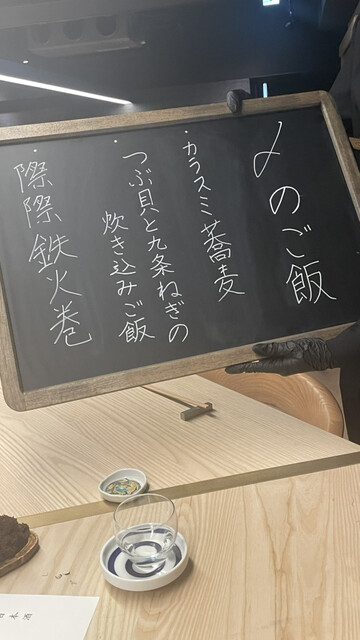 〆のご飯
・カラスミ蕎麦
・つぶ貝と九条ねぎの
炊き込みご飯
・際際鉄火巻
日本酒